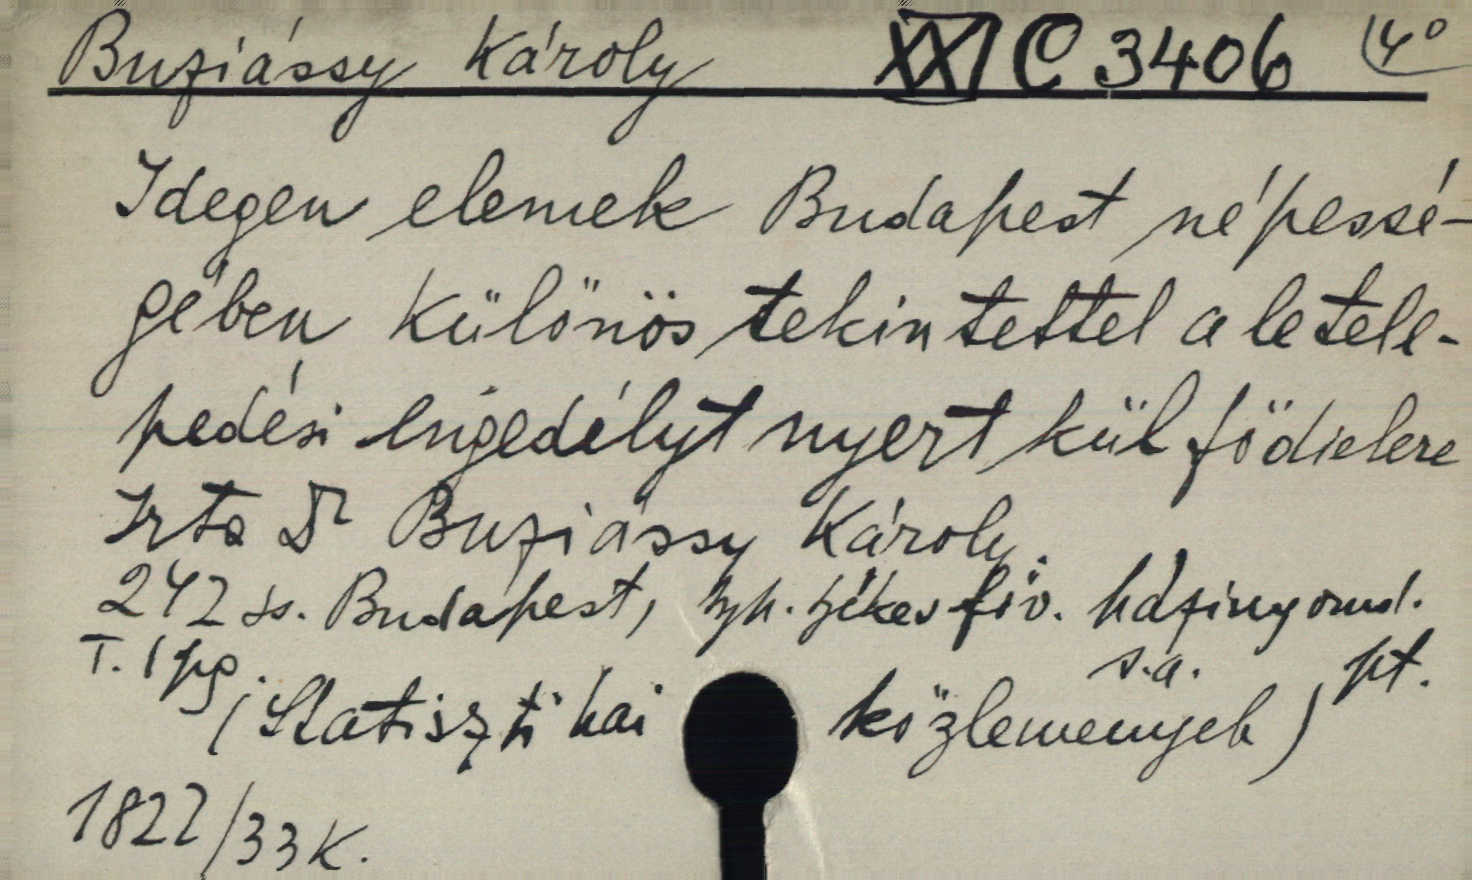 Buziássy Károly XXI C 3406 4°
Idegen elemek Budapest népessé-
gében különös tekintettel a letele-
pedési engedélyt nyert külfödiekre
Irta Dr Buziássy Károly.
242 ss. Budapest, typ. székesföv. házinyomd.
T. 1 pg. s.a. pt.
(Statisztikai közlemenyek)
1822/33 K.